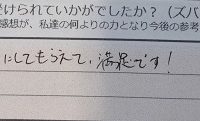 けられていかがでしたか？（ズバ
感想が、私達の何よりの力となり今後の参考
にしてもらえて、満足です！